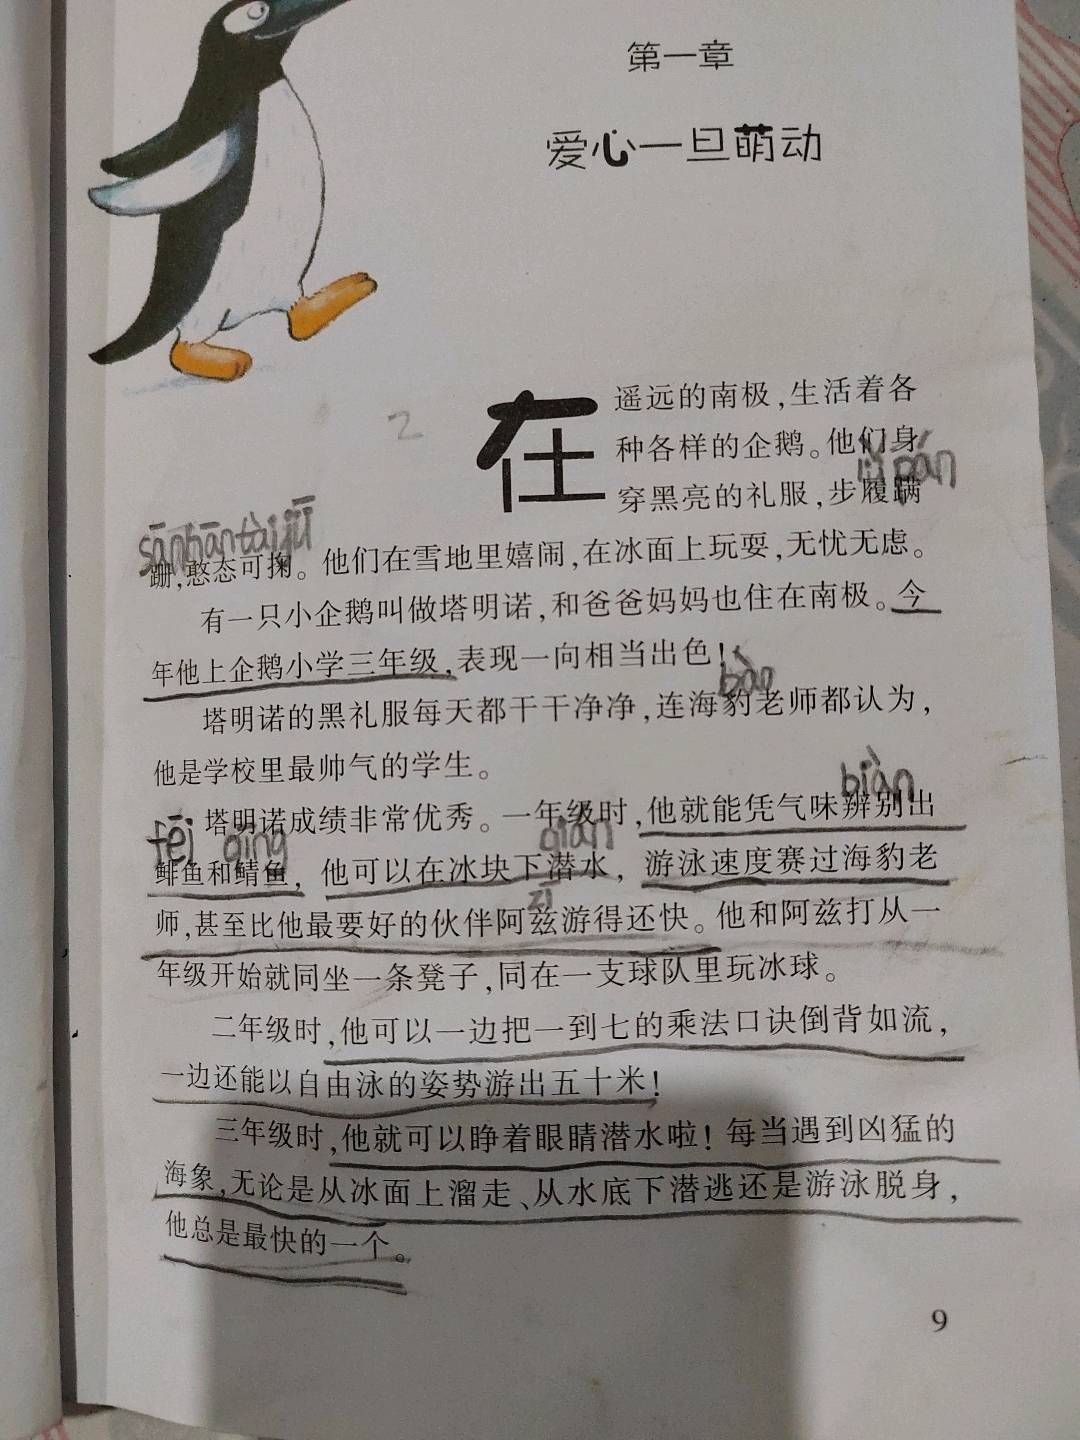 第一章
爱心一旦萌动
2
在遥远的南极,生活着各
种各样的企鹅。他们身
lǚ pán
穿黑亮的礼服,步履蹒
sānhāntàijū
跚,憨态可掬。他们在雪地里嬉闹,在冰面上玩耍,无忧无虑。
有一只小企鹅叫做塔明诺,和爸爸妈妈也住在南极。今
年他上企鹅小学三年级,表现一向相当出色!
bào
塔明诺的黑礼服每天都干干净净,连海豹老师都认为,
他是学校里最帅气的学生。
biàn
塔明诺成绩非常优秀。一年级时,他就能凭气味辨别出
fēi qīng qián
鲱鱼和鲭鱼,他可以在冰块下潜水,游泳速度赛过海豹老
zī
师,甚至比他最要好的伙伴阿兹游得还快。他和阿兹打从一
年级开始就同坐一条凳子,同在一支球队里玩冰球。
二年级时,他可以一边把一到七的乘法口诀倒背如流,
一边还能以自由泳的姿势游出五十米!
三年级时,他就可以睁着眼睛潜水啦!每当遇到凶猛的
海象,无论是从冰面上溜走、从水底下潜逃还是游泳脱身,
他总是最快的一个。
9